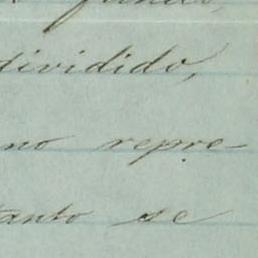 dividido,
no repre-
tanto se